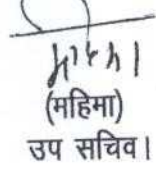 (महिमा)
उप सचिव।